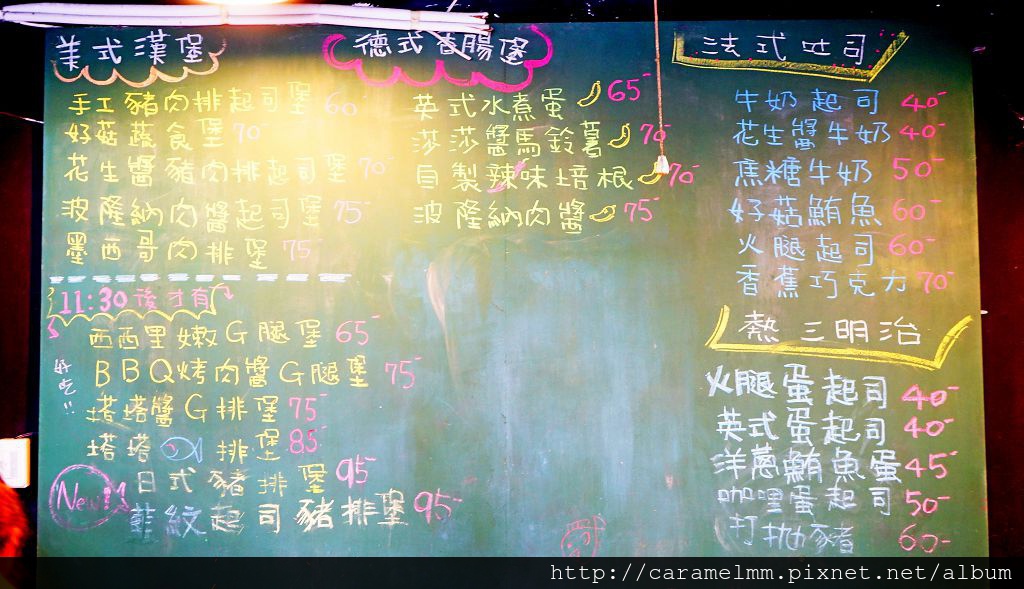 美式漢堡
手工豬肉排起司堡 60-
好菇蔬食堡 70-
花生醬豬肉排起司堡 70-
波隆納肉醬起司堡 75-
墨西哥肉排堡 75-
11:30後才有
好吃!!
西西里嫩G腿堡 65-
BBQ烤肉醬G腿堡 75-
塔塔醬G排堡 75-
塔塔 排堡 85-
New!!
日式豬排堡 95-
起司豬排堡 95-
德式香腸堡
英式水煮蛋 65-
莎莎醬馬鈴薯 70-
自製辣味培根 70-
波隆納肉醬 75-
法式吐司
牛奶起司 40-
花生醬牛奶 40-
焦糖牛奶 50-
好菇鮪魚 60-
火腿起司 60-
香蕉巧克力 70-
熱三明治
火腿蛋起司 40-
英式蛋起司 40-
洋蔥鮪魚蛋 45-
咖哩蛋起司 50-
打拋豬 60-
http://caramelmm.pixnet.net/album